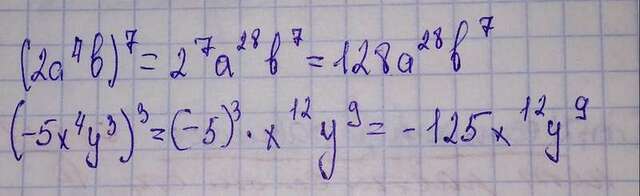 (2a⁴b)⁷ = 2⁷a²⁸b⁷ = 128a²⁸b⁷
(-5x⁴y³)³ = (-5)³ · x¹²y⁹ = -125x¹²y⁹